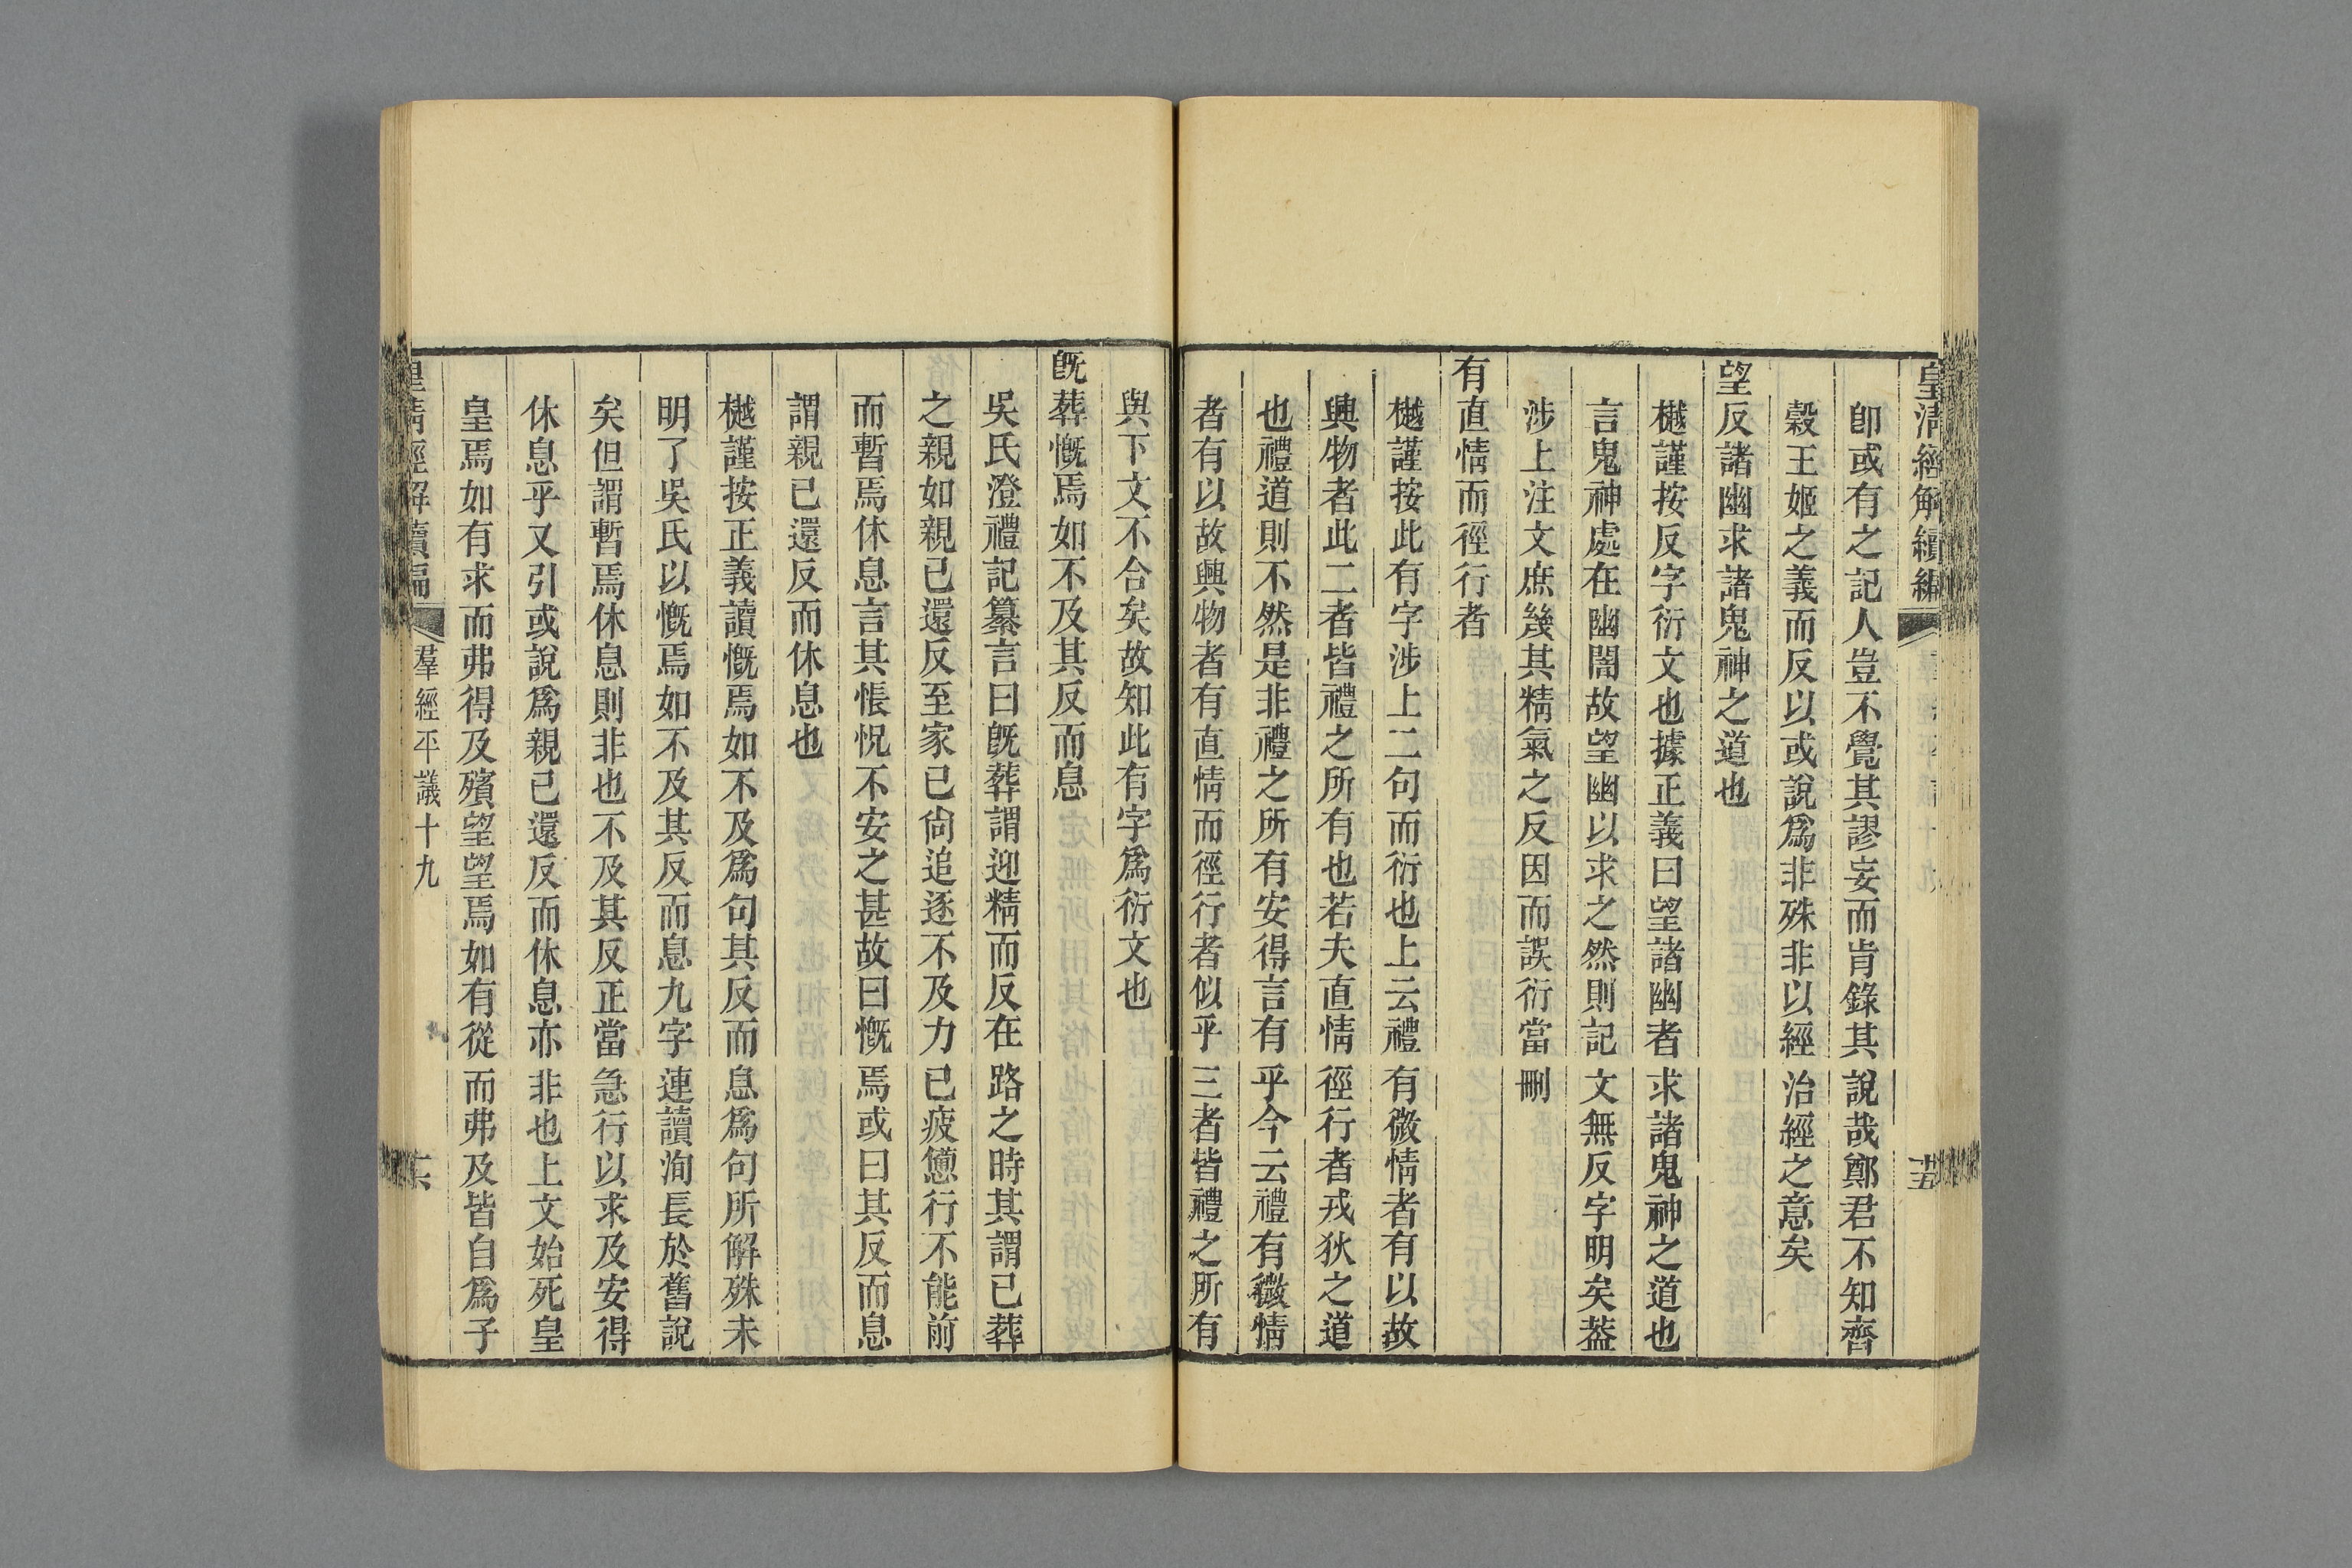 皇清經解續編
卽或有之記人豈不覺其謬妄而肯錄其說哉鄭君不知齊
穀王姬之義而反以或說爲非殊非以經治經之意矣
望反諸幽求諸鬼神之道也
樾謹按反字衍文也據正義曰望諸幽者求諸鬼神之道也
言鬼神處在幽闇故望幽以求之然則記文無反字明矣葢
涉上注文庶幾其精氣之反因而誤衍當刪
有直情而徑行者
樾謹按此有字涉上二句而衍也上云禮有微情者有以故
興物者此二者皆禮之所有也若夫直情徑行者戎狄之道
也禮道則不然是非禮之所有安得言有乎今云禮有微情
者有以故興物者有直情而徑行者似乎三者皆禮之所有
與下文不合矣故知此有字爲衍文也
旣葬慨焉如不及其反而息
吳氏澄禮記纂言曰旣葬謂迎精而反在路之時其謂已葬
之親如親已還反至家已尙追逐不及力已疲憊行不能前
而暫焉休息言其悵怳不安之甚故曰慨焉或曰其反而息
謂親已還反而休息也
樾謹按正義讀慨焉如不及爲句其反而息爲句所解殊未
明了吳氏以慨焉如不及其反而息九字連讀洵長於舊說
矣但謂暫焉休息則非也不及其反正當急行以求及安得
休息乎又引或說爲親已還反而休息亦非也上文始死皇
皇焉如有求而弗得及殯望望焉如有從而弗及皆自爲子
皇清經解續編 羣經平議十九